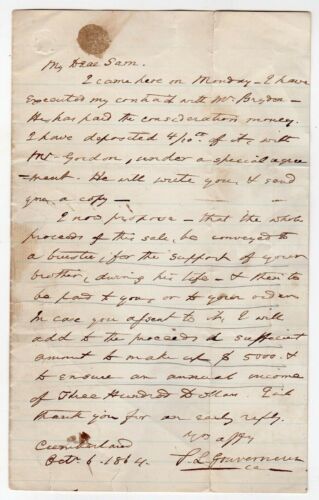 My Dear Sam.
I came here on Monday - I have
executed my contract with Mr Bryden -
He has paid the consideration money.
I have deposited 4/10ths of it, with
Mr. Gordon, under a special agree
=ment. He will write you, & send
you, a copy -
I now propose - that the whole
proceeds of this sale, be conveyed to
a trustee, for the support of your
brother, during his life - & then to
be paid to you, or to your orders
In case you assent to it, I will
add to the proceeds a sufficient
amount to make up $ 5000. &
to ensure an annual income
of Three Hundred Dollars.
thank you for an early reply.
Yrs affly
S. L. Gouverneur
Cumberland
Oct. 6. 1864.